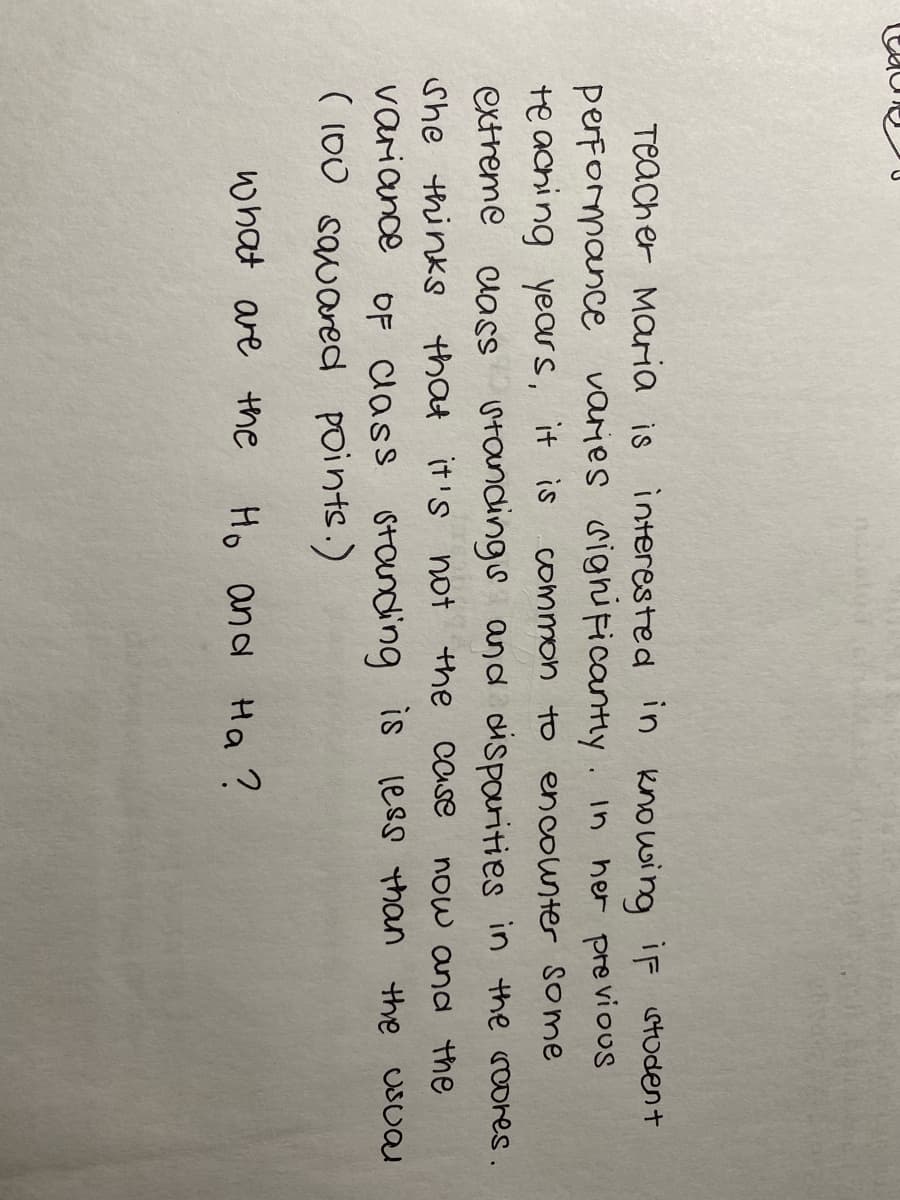 Teacher Maria is interested in knowing if student
performance varies significantly. In her previous
teaching years, it is common to encounter some
extreme class standings and disparities in the scores.
she thinks that it's not the case now and the
variance of class standing is less than the usual
(100 squared points.)
what are the Ho and Ha?